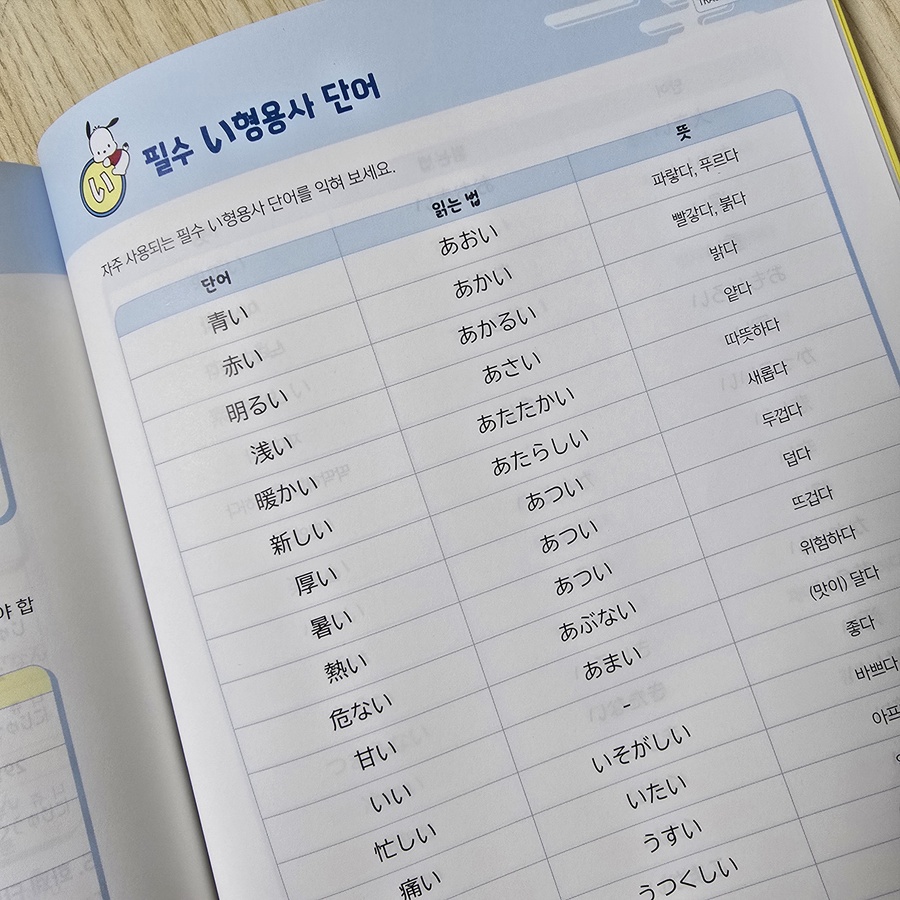 필수 い형용사 단어
い
자주 사용되는 필수 い형용사 단어를 익혀 보세요.
단어 읽는 법 뜻
青い あおい 파랗다, 푸르다
赤い あかい 빨갛다, 붉다
明るい あかるい 밝다
浅い あさい 얕다
暖かい あたたかい 따뜻하다
新しい あたらしい 새롭다
厚い あつい 두껍다
暑い あつい 덥다
熱い あつい 뜨겁다
危ない あぶない 위험하다
甘い あまい (맛이) 달다
いい - 좋다
忙しい いそがしい 바쁘다
痛い いたい 아프
うすい
うつくしい
야 합